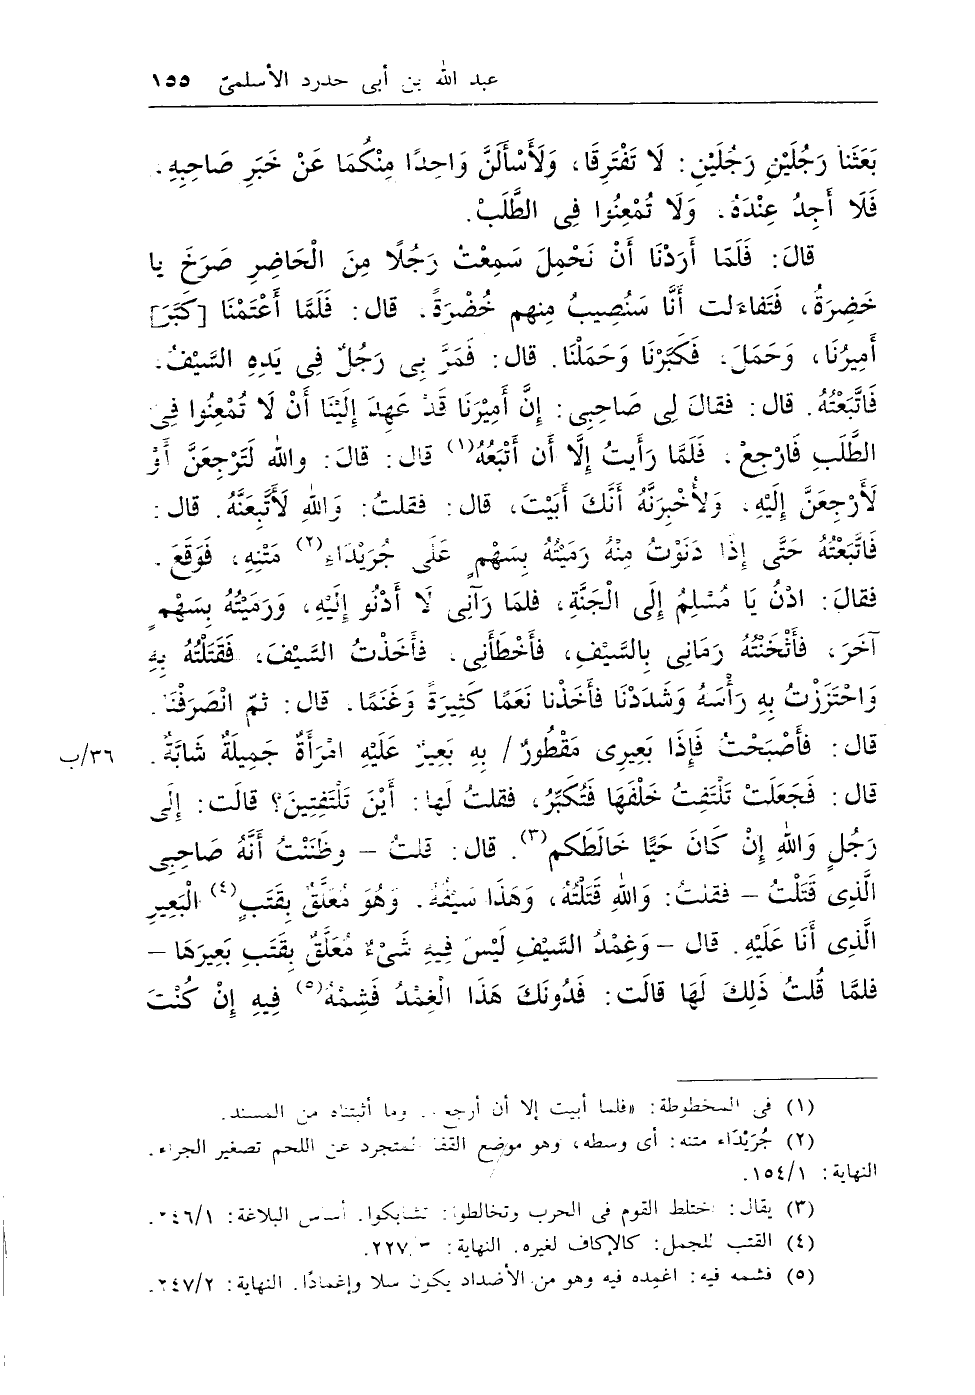 عبد الله بن أبى حدرد الأسلمىّ ١٥٥
بَعَثَنَا رَجُلَيْنِ رَجُلَيْنِ: لَا تَفْتَرِقَا، وَلَأَسْأَلَنَّ وَاحِدًا مِنْكُمَا عَنْ خَبَرِ صَاحِبِهِ.
فَلَا أَجِدُ عِنْدَهُ. وَلَا تُمْعِنُوا فِى الطَّلَبْ.
قَالَ: فَلَمَّا أَرَدْنَا أَنْ نَحْمِلَ سَمِعْتُ رَجُلًا مِنَ الْحَاضِرِ صَرَخَ يا
خَضِرَةُ، فَتَفاءَلت أَنَّا سَنُصِيبُ مِنهم خُضْرَةً. قال: فَلَمَّا أَعْتَمْنَا [كَبَّرَ]
أَمِيرُنَا، وَحَمَلَ. فَكَبَّرْنَا وَحَمَلْنَا. قال: فَمَرَّ بى رَجُلٌ فِى يَدِهِ السَّيْفُ.
فَاتَّبَعْتُهُ. قال: فقالَ لِى صَاحِبِى: إِنَّ أَمِيْرَنَا قَدْ عَهِدَ إِلَيْنَا أَنْ لَا تُمْعِنُوا فِى
الطَّلَبِ فَارْجِعْ. فَلَمَّا رَأَيتُ إِلَّا أَن أَتْبَعُهُ(١) قال: قالَ: والله لَتَرْجِعَنَّ أَوْ
لَأَرْجِعَنَّ إِلَيْهِ، وَلَأُخْبِرَنَّهُ أَنَّكَ أَبَيْتَ، قال: فقلتُ: وَاللهِ لَأَتَّبِعَنَّهُ. قال:
فَاتَّبَعْتُهُ حَتَّى إِذَا دَنَوْتُ مِنْهُ رَمَيْتُهُ بِسَهْمٍ عَلَى جُرَيْدَاءِ(٢) مَتْنِهِ، فَوَقَعَ.
فقالَ: ادْنُ يَا مُسْلِمُ إِلَى الْجَنَّةِ، فلمَا رَآنِى لَا أَدْنُو إِلَيْهِ، وَرَمَيْتُهُ بِسَهْمٍ
آخَرَ، فَأَثْخَنْتُهُ رَمَانِى بِالسَّيْفِ، فَأَخْطَأَنِى. فأَخَذْتُ السَّيْفَ، فَقَتَلْتُهُ بِهِ
وَاحْتَزَزْتُ بِهِ رَأْسَهُ وَشَدَدْنَا فأَخَذْنا نَعَمًا كَثِيرَةً وَغَنَمًا. قال: ثمّ انْصَرَفْنَا.
قال: فأَصْبَحْتُ فَإِذَا بَعِيرِى مَقْطُورٌ / بِهِ بَعِيرٌ عَلَيْهِ امْرَأَةٌ جَمِيلَةٌ شَابَّةٌ.
٣٦/ب
قال: فَجَعَلَتْ تَلْتَفِتُ خَلْفَهَا فَتُكَبِّرُ، فقلتُ لها: أَيْنَ تَلْتَفِتِينَ؟ قالَت: إِلَى
رَجُلٍ وَاللهِ إِنْ كَانَ حَيًّا خَالَطَكم(٣). قال: قلتُ – وظَنَنْتُ أَنَّهُ صَاحِبِى
الَّذِى قَتَلْتُ – فقلتُ: وَاللهِ قَتَلْتُهُ، وَهَذَا سَيْفُهُ. وَهُوَ مُعَلَّقٌ بِقَتَبِ(٤) الْبَعِيرِ
الَّذِى أَنَا عَلَيْهِ. قال – وَغِمْدُ السَّيْفِ لَيْسَ فِيهِ شَىْءٌ مُعَلَّقٌ بِقَتَبِ بَعِيرَهَا –
فلمَّا قُلتُ ذَلِكَ لَهَا قالَت: فَدُونَكَ هَذَا الْغِمْدُ فَشِمْهُ(٥) فِيهِ إِنْ كُنْتَ
(١) فى المخطوطة: «فلما أبيت إلا أن أرجع .. وما أثبتناه من المسند.
(٢) جُرَيْدَاء متنه: أى وسطه، وهو موضع القفا المتجرد عن اللحم تصغير الجراء.
النهاية: ١٥٤/١.
(٣) يقال: اختلط القوم فى الحرب وتخالطوا: تشابكوا. أساس البلاغة: ٢٤٦/١.
(٤) القتب للجمل: كالإكاف لغيره. النهاية: ٢٢٧.
(٥) فشمه فيه: اغمده فيه وهو من الأضداد يكون سلا وإغمادًا. النهاية: ٢٤٧/٢.